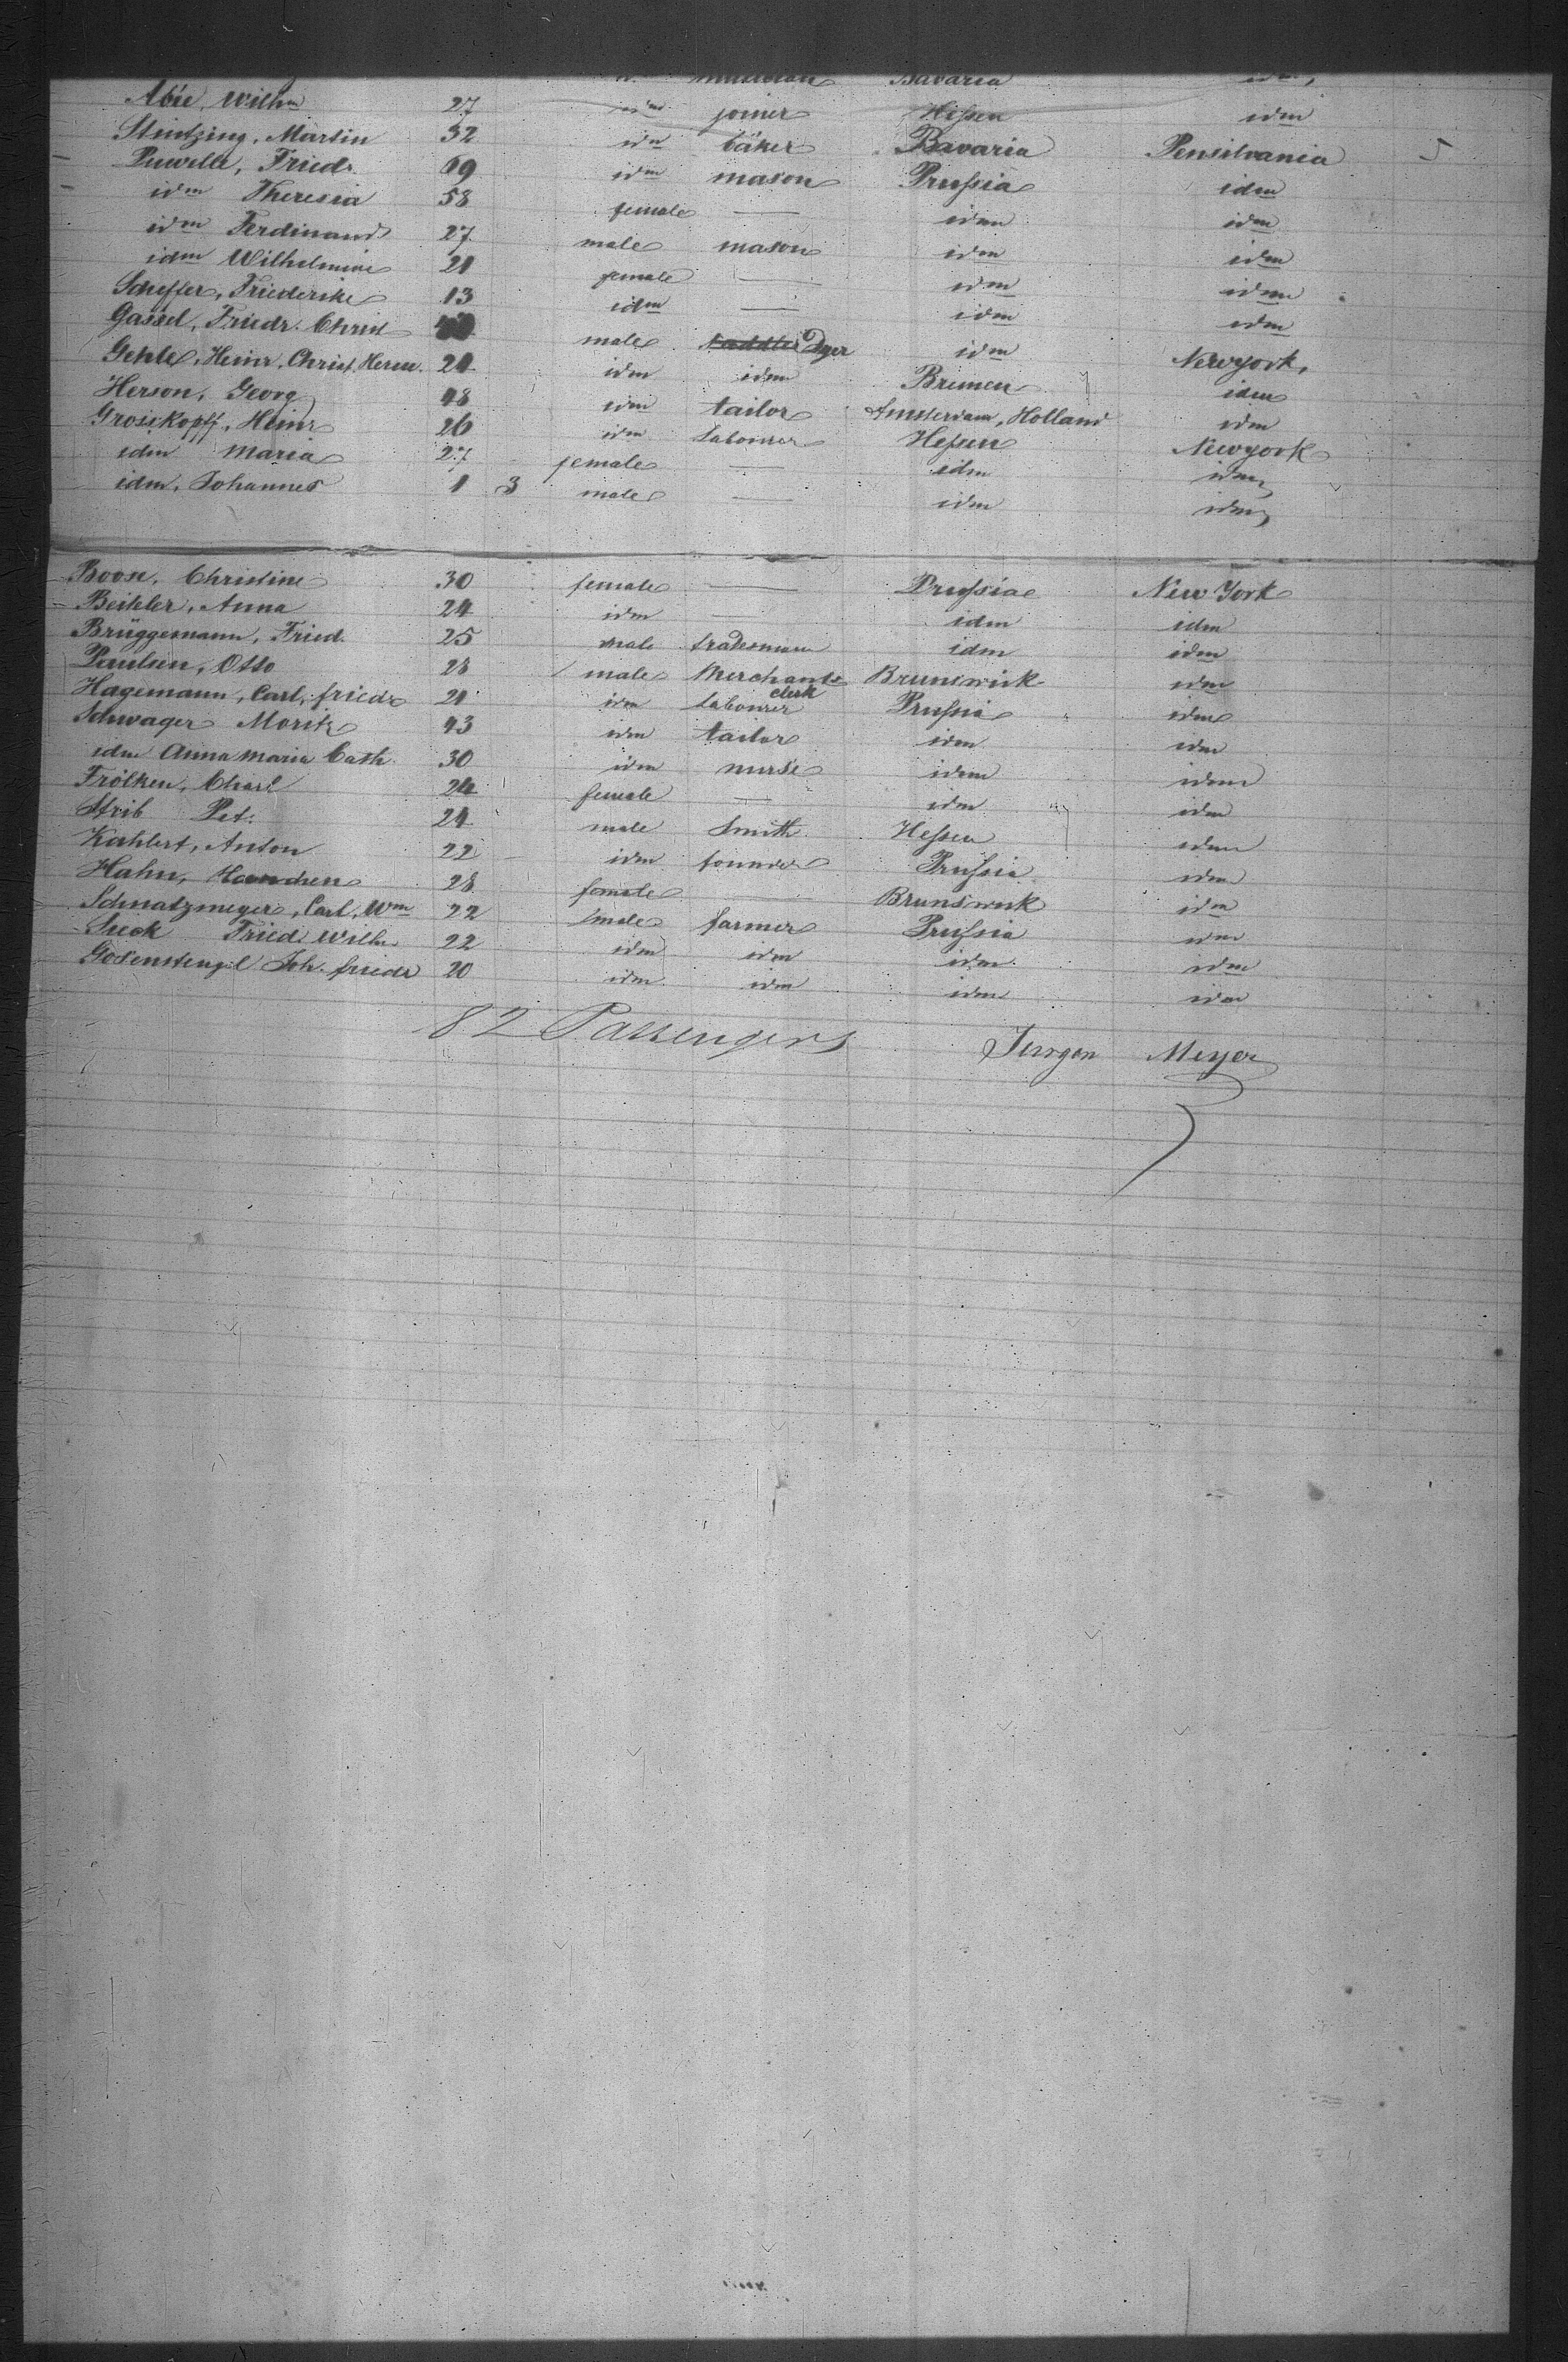 Bavaria idm,
Abée, Wilhm 27 idm joiner Hessen idm
Stintzing, Martin 32 idm bäker Bavaria Pensilvania
Puwelle, Friedr. 69 idm mason Prussia idm
idm Theresia 58 female — idm idm
idm Ferdinand 27 male mason idm idm
idm Wilhelmine 21 female — idm idm
Scheffer, Friederike 13 idm — idm idm
Gassel, Friedr. Christ male saddler Dyer idm Newyork,
Gehle, Heinr. Christ. Herm. 21 idm idm Bremen idm
Herson, Georg 48 idm tailor Amsterdam, Holland idm
Grosskopff, Heinr 26 idm labourer Hessen Newyork
idm Maria 27 female — idm idm,
idm, Johannes 1 3 male — idm idm,
Boose, Christine 30 female — Prussia New York
Beikler, Anna 24 idm — idm idm
Brüggemann, Fried. 25 male tradesman idm idm
Paulsen, Otto 28 male Merchants clerk Brunswick idm
Hagemann, Carl, friedr 21 idm labourer Prussia idm
Schwager Moritz 43 idm tailor idm idm
idm Anna Maria Cath. 30 idm nurse idm idm
Frölken, Charl 24 female — idm idm
Strib Pet. 24 male Smith Hessen idm
Kahlert, Anton 22 idm founder Prussia idm
Hahn, 28 female — Brunswick idm
Schnatzmeyer, Carl, Wm 22 male farmer Prussia idm
Sieck Fried Wilhm 22 idm idm idm idm
Gosenstengel Joh. friedr 20 idm idm idm idm
82 Passengers Jurgen Meyer